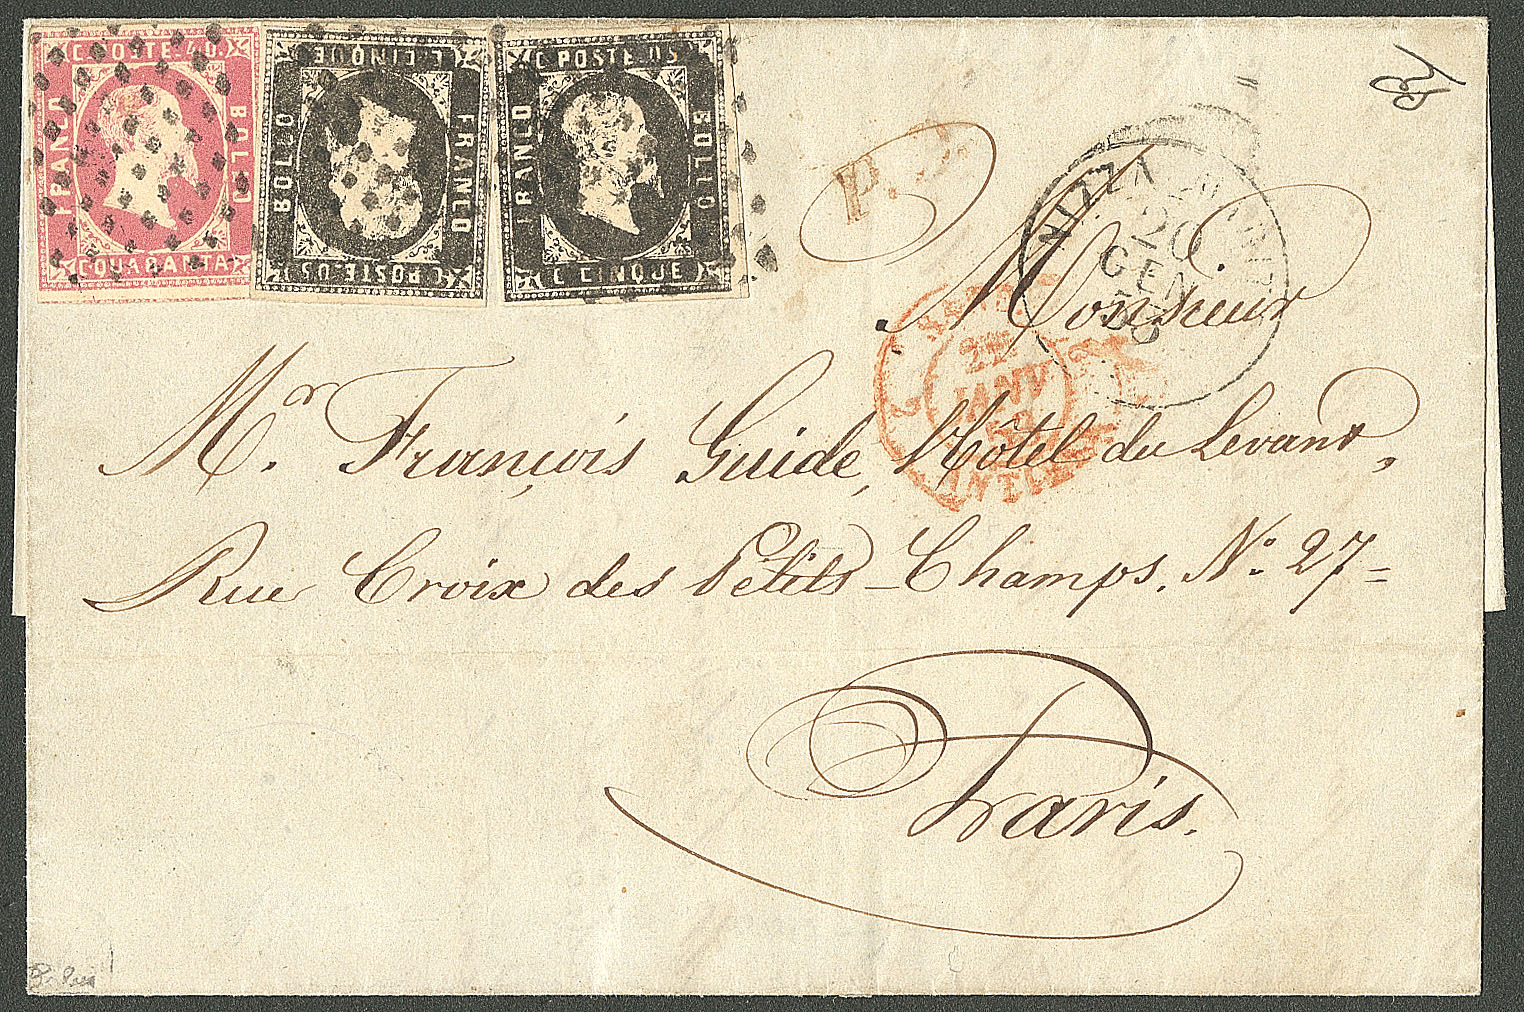 C. POSTE. 40.
FRANCO
BOLLO
C. QUARANTA
C. CINQUE
BOLLO
FRANCO
C. POSTE. 05
C. POSTE. 05
FRANCO
BOLLO
C. CINQUE
P.D.
NIZZA MARITT
20
GEN
22
JANV
ANTIBES
Monsieur
Mr. François Guide, Hôtel du Levant,
Rue Croix des Petits-Champs. No. 27=
Paris.